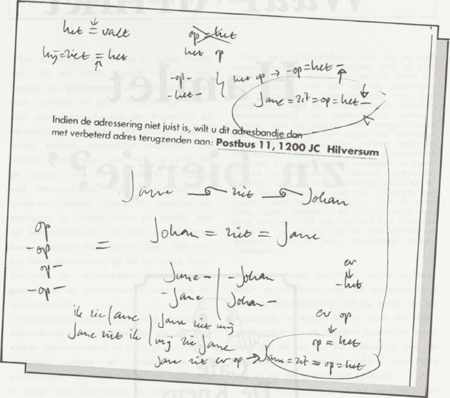 het = valt
op = het
hij = ziet = het
het op
-op-
-het-
het op → -op = het =
Jane = zit = op = het -
Indien de adressering niet juist is, wilt u dit adresbandje dan
met verbeterd adres terugzenden aan: Postbus 11, 1200 JC Hilversum
Jane ziet Johan
= Johan = ziet = Jane
op
-op
op-
-op-
Jane - | - Johan
- Jane | Johan -
er
-het
ik zie Jane | Jane ziet mij
Jane ziet ik | mij zie Jane
Jane zit er op → Jane = zit = op = het
er op
op = het